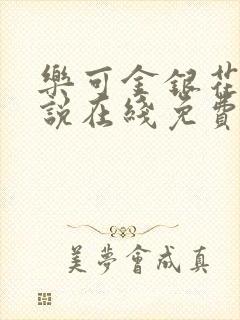 樂可金銀花
說在綫免費
美夢會成真